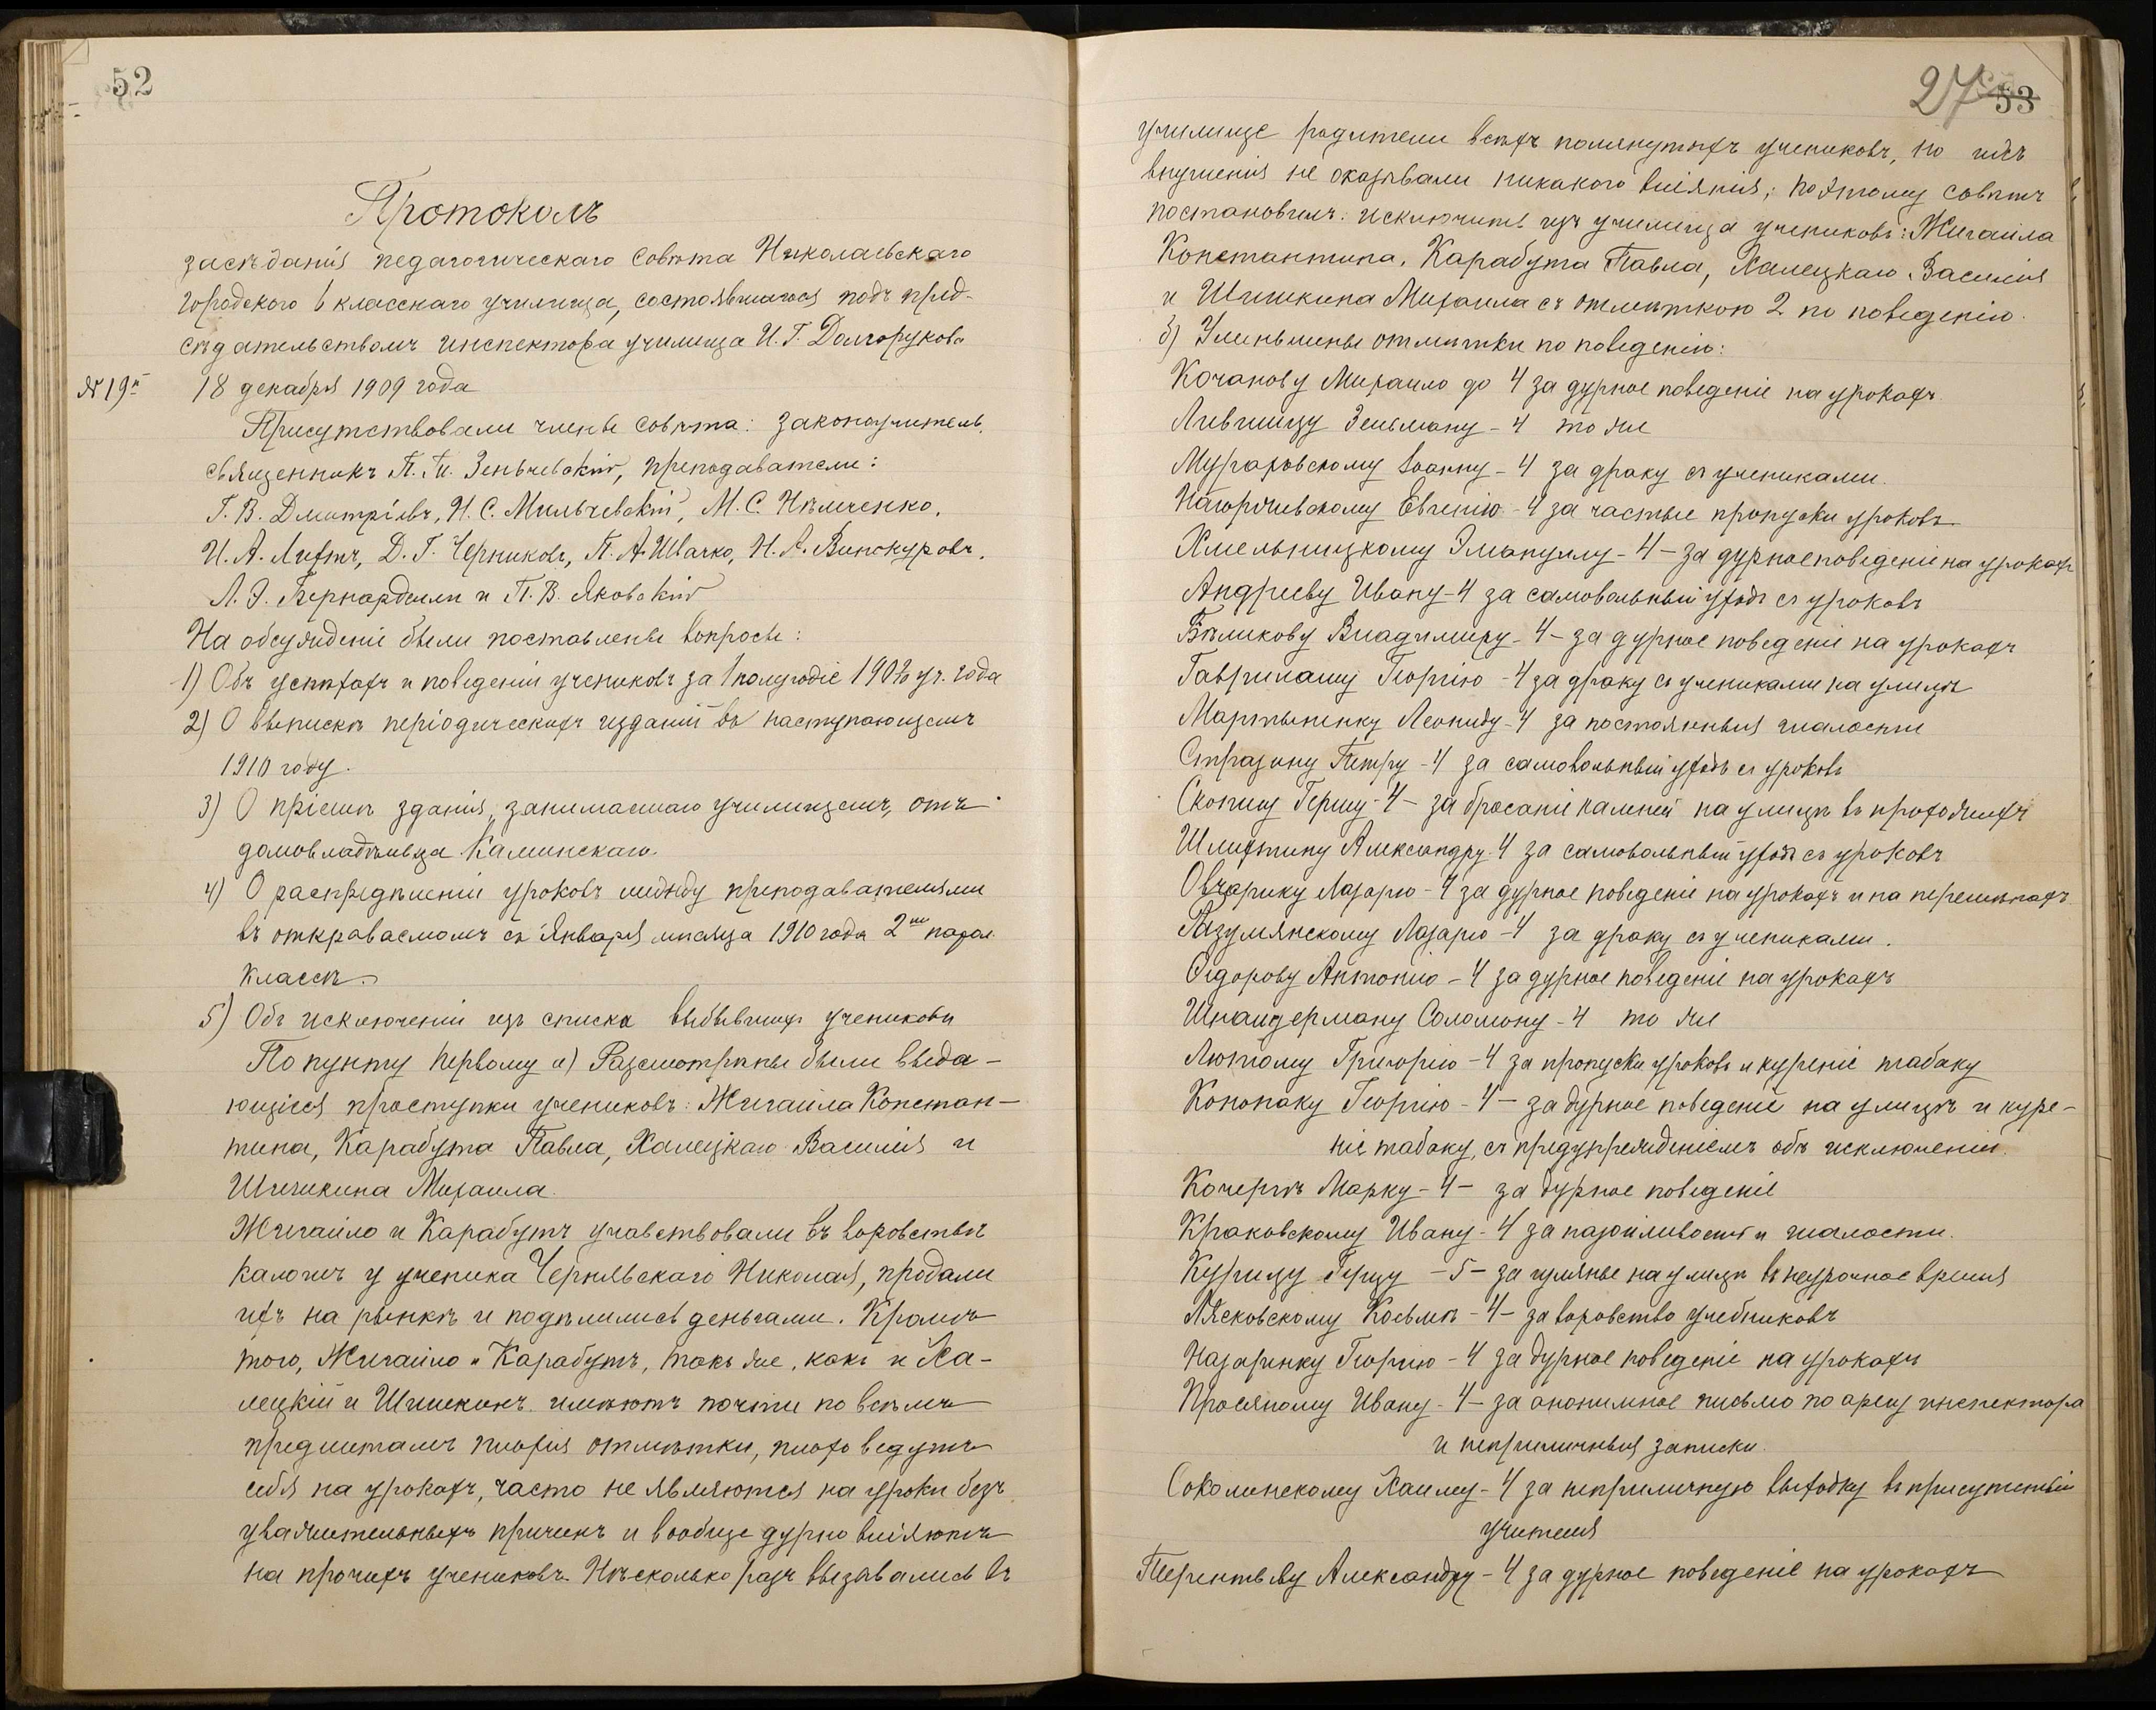 52
Протоколъ
засѣданія педагогическаго совѣта Николаевскаго
городского 6 класснаго училища, состоявшагося подъ пред-
сѣдательствомъ инспектора училища И. Г. Долгорукова
№ 19й 18 декабря 1909 года
Присутствовали члены совѣта: законоучитель,
священникъ П. М. Зеньчевскій, преподаватели:
Г. В. Дмитріевъ, Н. С. Мильчевскій, М. С. Нѣмченко,
И. А. Лифтъ, Д. Г. Черниковъ, П. А. Швачко, Н. А. Винокуровъ,
Л. Э. Бернардели и П. В. Яковскій
На обсужденіе были поставлены вопросы:
1) Объ успѣхахъ и поведеніи учениковъ за 1 полугодіе 1909/10 уч. года
2) О выпискѣ періодическихъ изданій въ наступающемъ
1910 году.
3) О пріемѣ зданія, занимаемаго училищемъ, отъ
домовладѣльца Каминскаго.
4) О распредѣленіи уроковъ между преподавателями
въ открываемомъ съ Января мѣсяца 1910 года 2мъ парал.
классѣ.
5) Объ исключеніи изъ списка выбывшихъ учениковъ
По пункту первому а) Разсмотрѣны были выда-
ющіеся проступки учениковъ: Жигаила Констан-
тина, Карабута Павла, Халецкаго Василія и
Шишкина Михаила.
Жигайло и Карабутъ учавствовали въ воровствѣ
калошъ у ученика Чернявскаго Николая, продали
ихъ на рынкѣ и подѣлились деньгами. Кромѣ
того, Жигайло и Карабутъ, такъ же, какъ и Ха-
лецкій и Шишкинъ имѣютъ почти по всѣмъ
предметамъ плохія отмѣтки, плохо ведутъ
себя на урокахъ, часто не являются на уроки безъ
уважительныхъ причинъ и вообще дурно вліяютъ
на прочихъ учениковъ. Нѣсколько разъ вызывались въ
27 53
училище родители всѣхъ помянутыхъ учениковъ, но ихъ
внушенія не оказывали никакого вліянія; поэтому совѣтъ
постановилъ: исключить изъ училища учениковъ: Жигаила
Константина, Карабута Павла, Халецкаго Василія
и Шишкина Михаила съ отмѣткою 2 по поведенію.
б) Уменьшены отмѣтки по поведенію:
Кочанову Михаилу до 4 за дурное поведеніе на урокахъ
Лившицу Зельману - 4 то же
Мураховскому Іоанну - 4 за драку съ учениками.
Нагоричевскому Евгенію - 4 за частые пропуски уроковъ
Хмельницкому Эмануилу - 4 - за дурное поведеніе на урокахъ
Андрееву Ивану - 4 за самовольный уходъ съ уроковъ
Бѣликову Владимиру - 4 - за дурное поведеніе на урокахъ
Гаврилашу Георгію - 4 за драку съ учениками на улицѣ
Мартыненку Леониду - 4 за постоянныя шалости
Страхину Петру - 4 за самовольный уходъ съ уроковъ
Скопицу Гершу - 4 - за бросаніе камней на улицѣ въ прохожихъ
Шлихтину Александру - 4 за самовольный уходъ съ уроковъ
Овчарику Лазарю - 4 за дурное поведеніе на урокахъ и на перемѣнахъ
Разумянскому Лазарю - 4 за драку съ учениками.
Сидорову Антонію - 4 за дурное поведеніе на урокахъ
Шнайдерману Соломону - 4 то же
Лютому Григорію - 4 за пропуски уроковъ и куреніе табаку
Конопаку Георгію - 4 - за дурное поведеніе на улицѣ и куре-
ніе табаку, съ предупрежденіемъ объ исключеніи.
Кочергѣ Марку - 4 - за дурное поведеніе
Краковскому Ивану - 4 за назойливость и шалости.
Курицу Герцу - 5 - за гулянье на улицѣ въ неурочное время
Лясковскому Косьмѣ - 4 - за воровство учебниковъ
Назаренку Георгію - 4 за дурное поведеніе на урокахъ
Просяному Ивану - 4 - за анонимное письмо по адресу инспектора
и неприличныя записки.
Соколинскому Хаиму - 4 за неприличную выходку въ присутствіи
учителя
Терентьеву Александру - 4 за дурное поведеніе на урокахъ